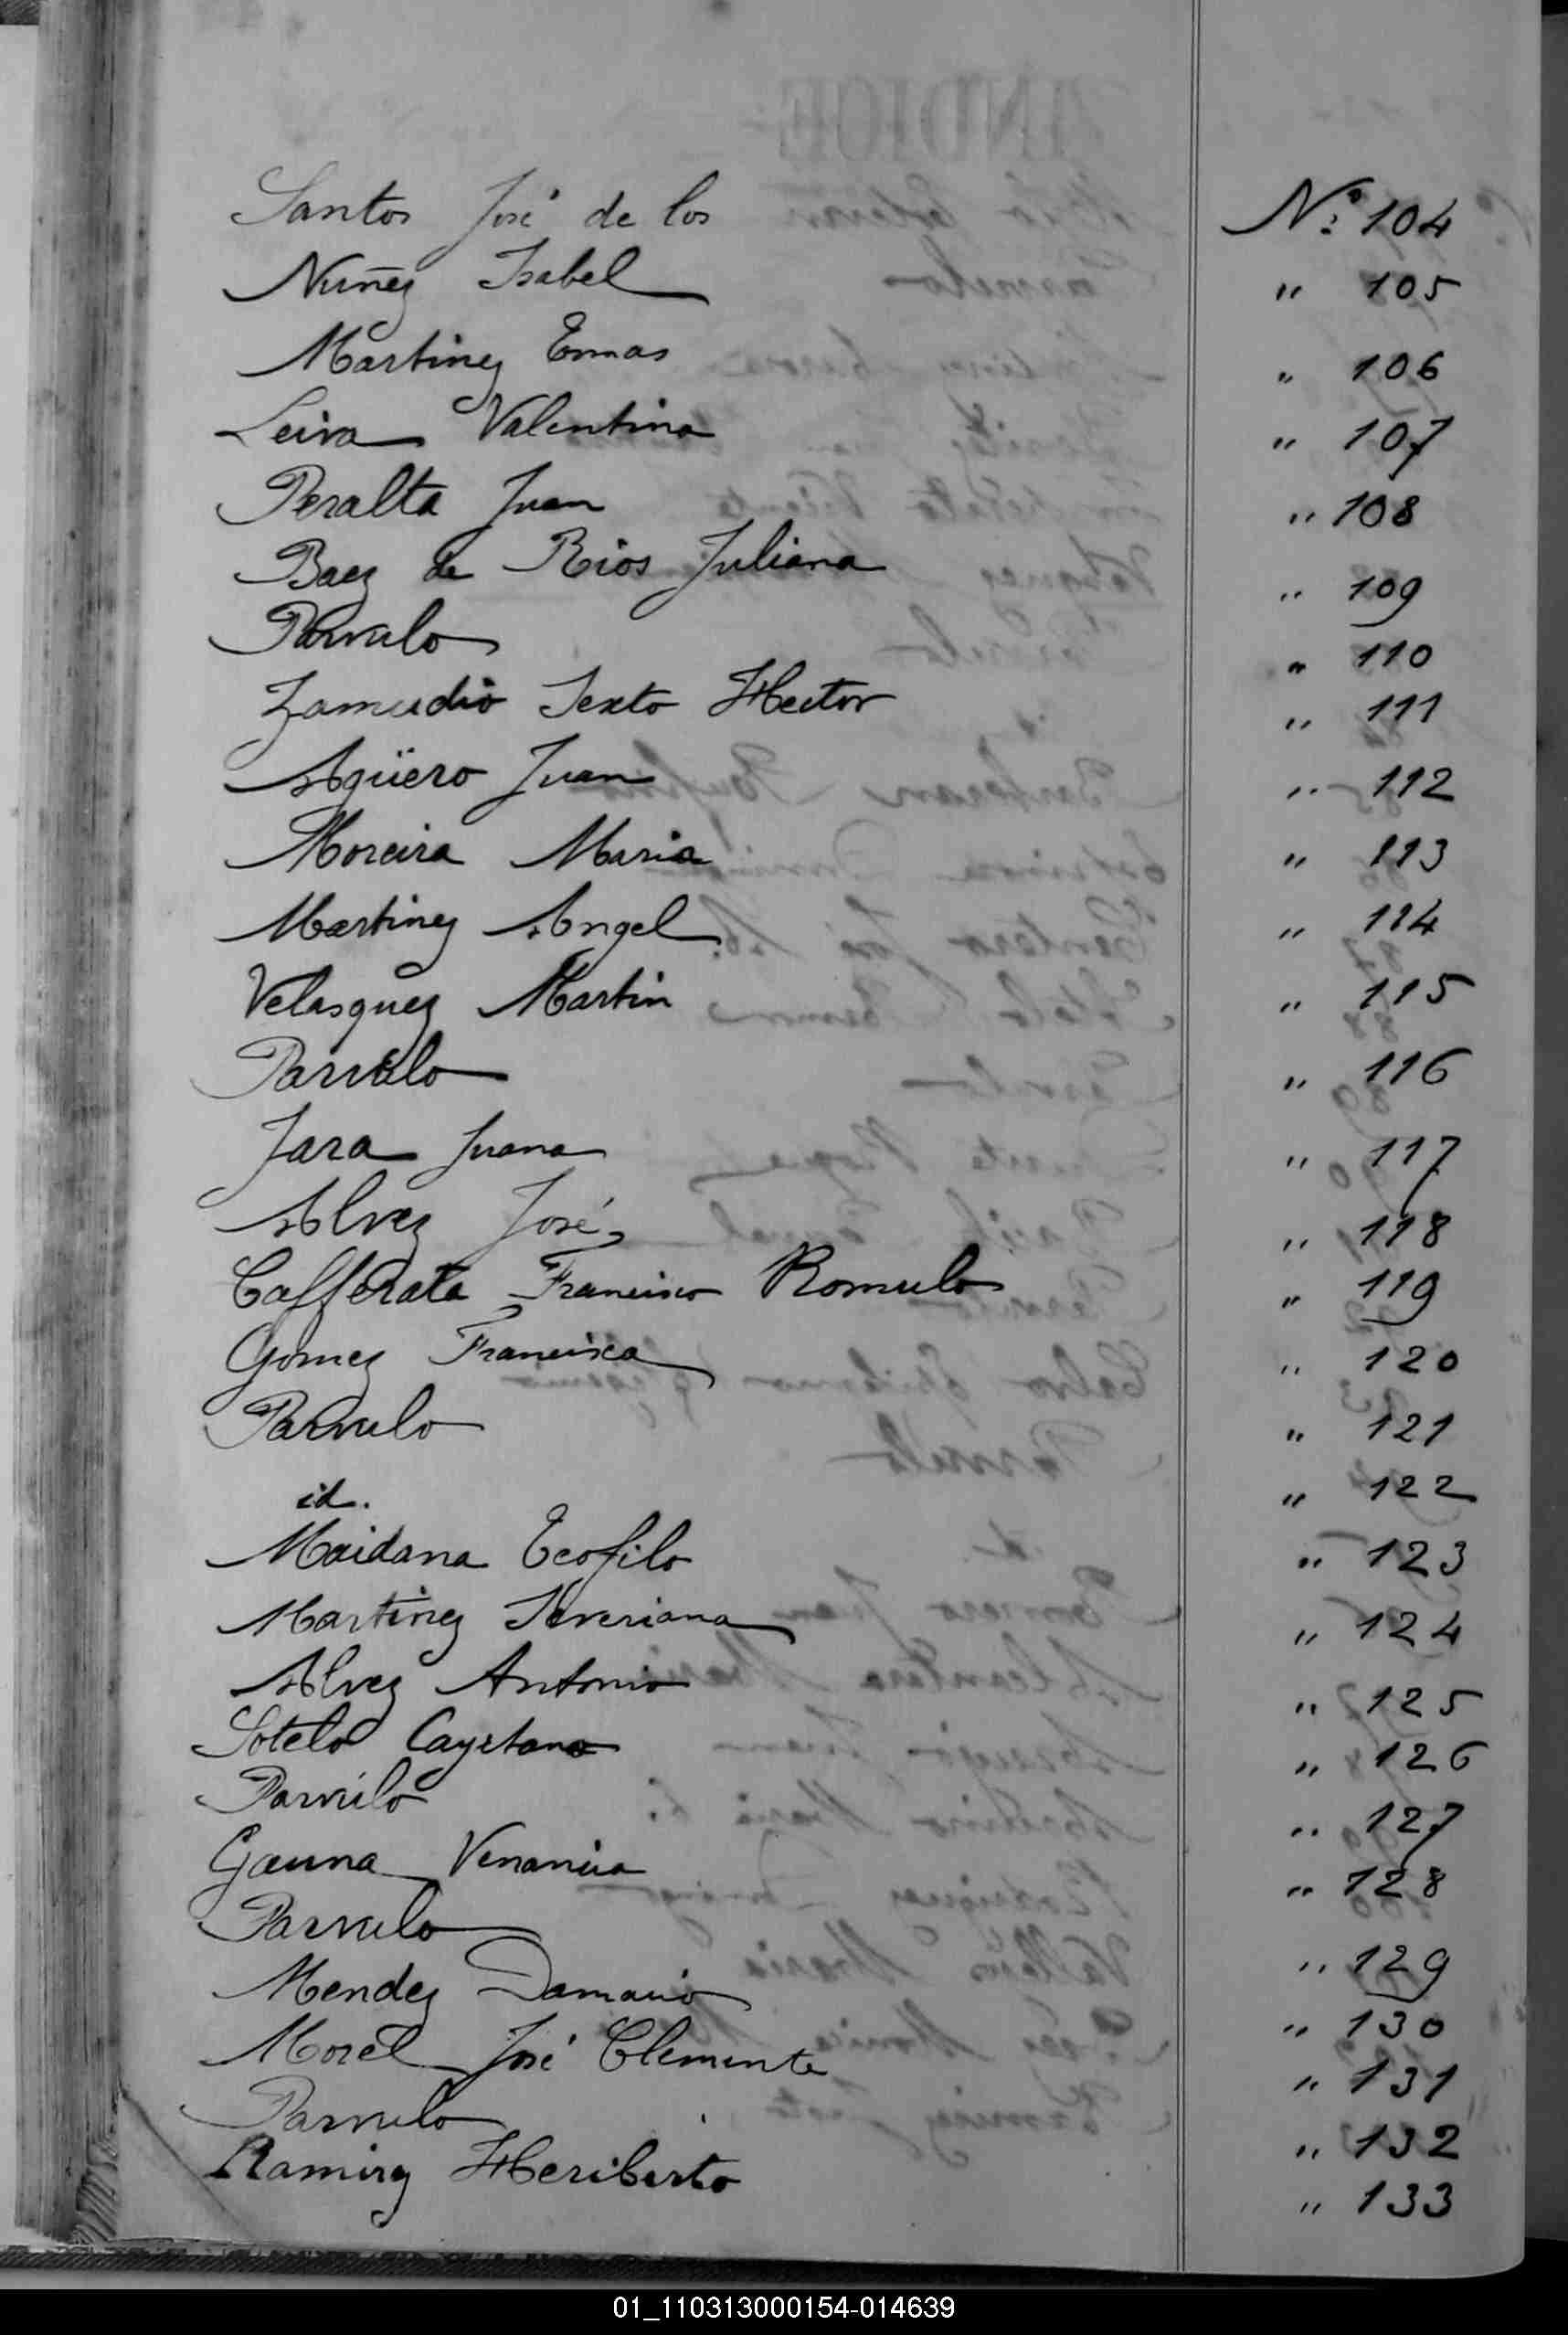 Santos José de los Nº 104
Nuñez Isabel " 105
Martinez Tomas " 106
Leiva Valentina " 107
Peralta Juan " 108
Baez de Rios Juliana " 109
Parvulo " 110
Zamudio Sexto Hector " 111
Agüero Juan " 112
Moreira Maria " 113
Martinez Angel " 114
Velasquez Martin " 115
Parvulo " 116
Jara Juana " 117
Alvez José " 118
Cafferata Francisco Romulo " 119
Gomez Francisca " 120
Parvulo " 121
id. " 122
Maidana Teofilo " 123
Martinez Severiana " 124
Alvez Antonio " 125
Sotelo Cayetano " 126
Parvulo " 127
Gauna Venancia " 128
Parvulo " 129
Mendez Damacio " 130
Morel José Clemente " 131
Parvulo " 132
Ramirez Heriberto " 133
01_110313000154-014639